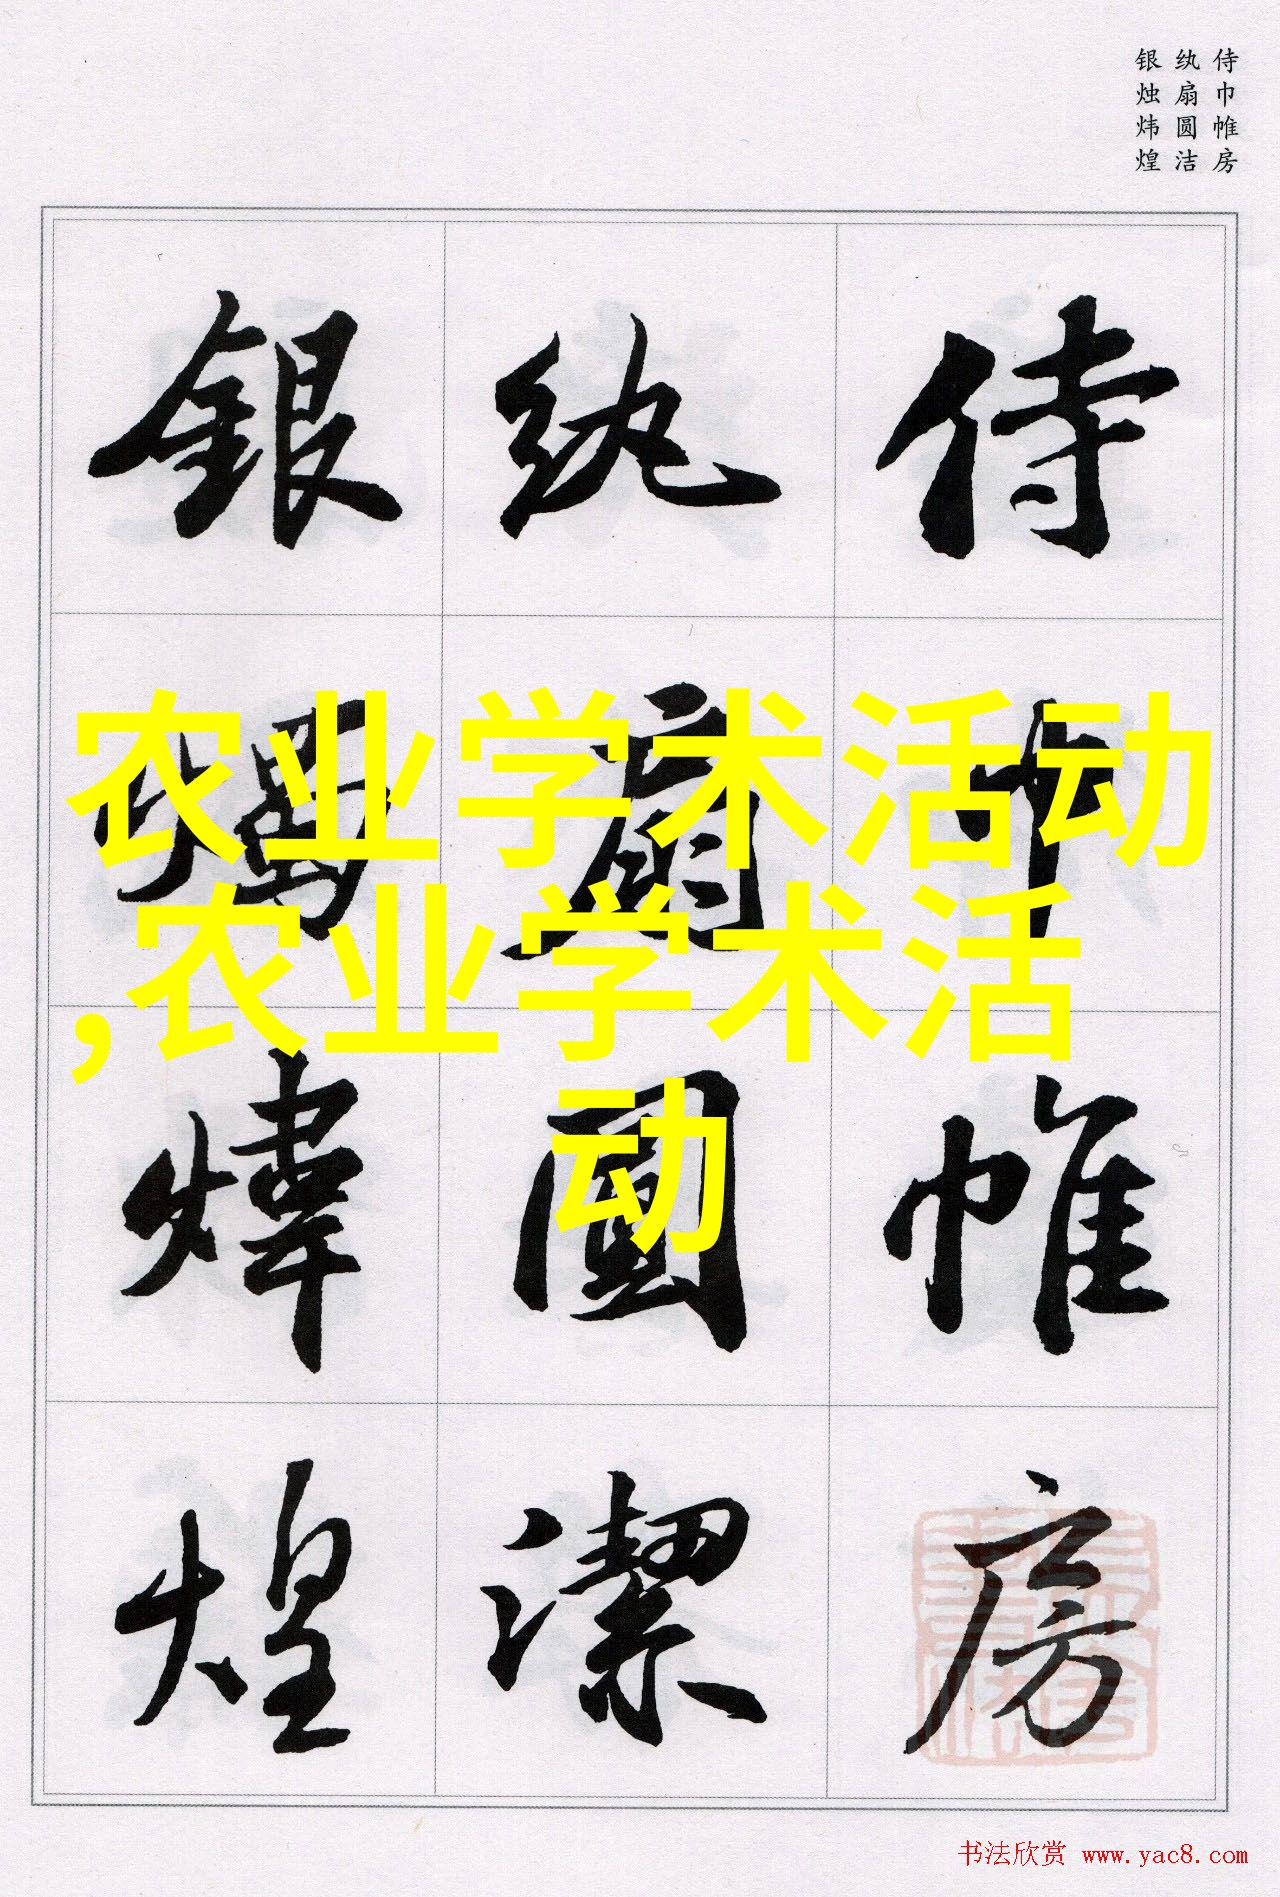 侍巾帷房
纨扇圆洁
银烛炜煌
侍巾帷房
纨扇圓潔
銀燭煒煌
农业学术活动
,农业学术活
动
书法欣赏 www.yac8.com